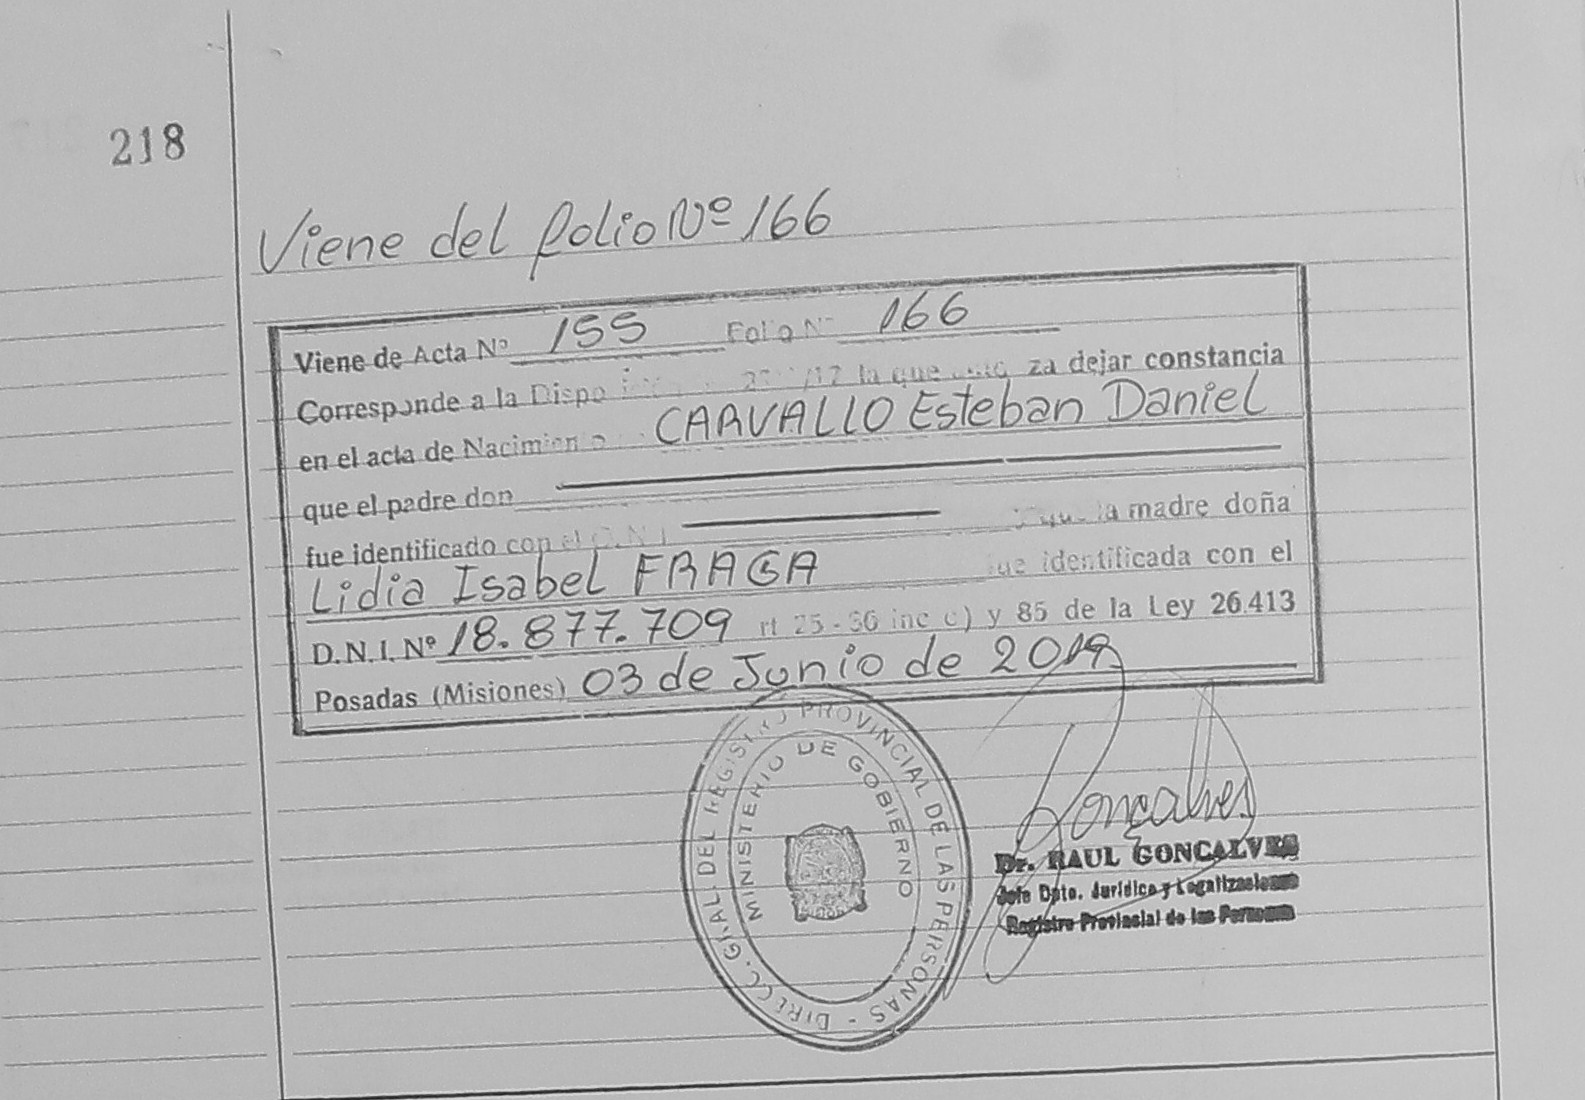 218
Viene del folio Nº 166
Viene de Acta Nº 155 Folio Nº 166
Corresponde a la la que za dejar constancia
en el acta de Nacimiento CARVALLO Esteban Daniel
que el padre don
fue identificado con el D.N.I. la madre doña
Lidia Isabel FRAGA fue identificada con el
D.N.I. Nº 18.877.709 rt 25-36 inc c) y 85 de la Ley 26.413
Posadas (Misiones) 03 de Junio de 2019
DIRECC. GRAL. DEL REGISTRO PROVINCIAL DE LAS PERSONAS -
MINISTERIO DE GOBIERNO
Goncalves
Dr. RAUL GONCALVES
Jefe Dpto. Jurídico y Legalizaciones
Registro Provincial de las Personas